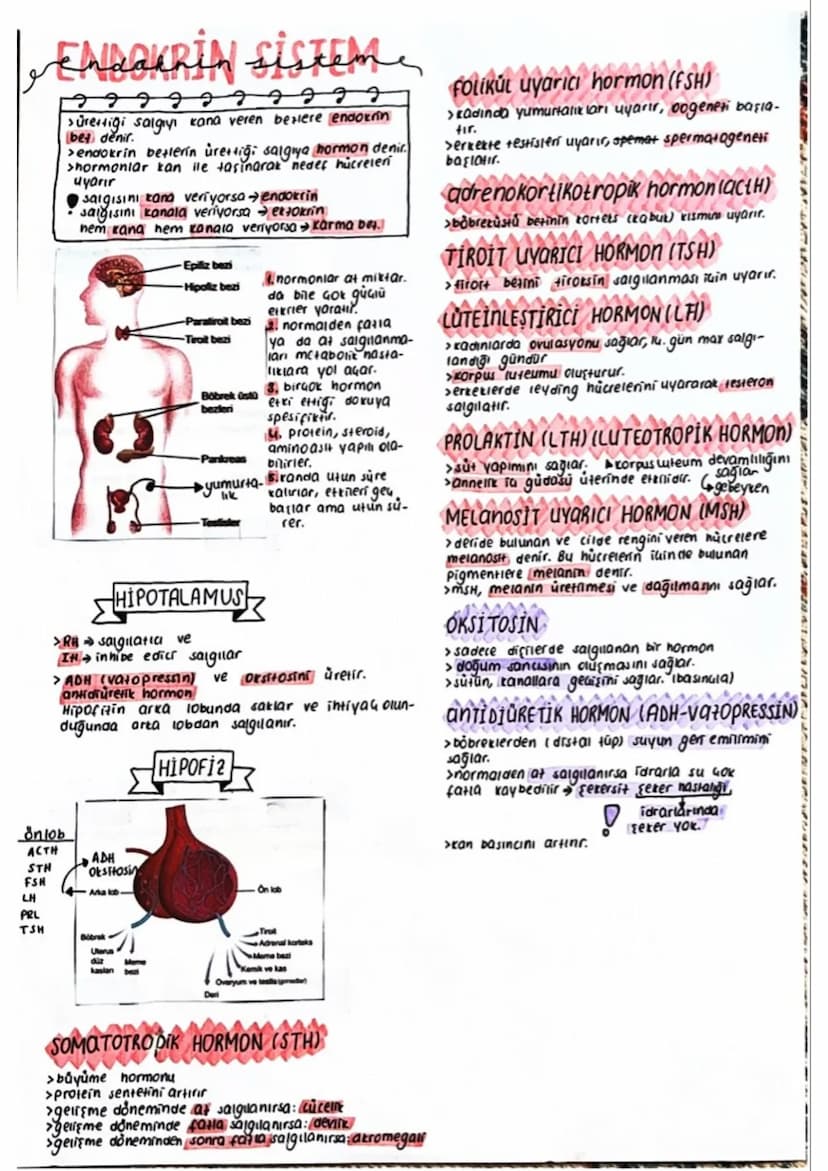 ENDOKRİN SİSTEM
endokrin sistem
>ürettiği salgıyı kana veren bezlere endokrin
bez denir.
>endokrin bezlerin ürettiği salgıya hormon denir.
>hormonlar kan ile taşınarak hedef hücreleri
uyarır
! salgısını kana veriyorsa → endokrin
salgısını kanala veriyorsa → ekzokrin
hem kana hem kanala veriyorsa → karma bez.
Epifiz bezi
Hipofiz bezi
Paratiroit bezi
Tiroit bezi
Böbrek üstü
bezleri
Pankreas
yumurta-
lık
Testisler
1. hormonlar az miktar.
da bile çok güçlü
etkiler yaratır.
2. normalden fazla
ya da az salgılanma-
ları metabolik hasta-
lıklara yol açar.
3. birçok hormon
etki ettiği dokuya
spesifiktir.
4. protein, steroid,
aminoasit yapılı ola-
bilirler.
5. kanda uzun süre
kalırlar, etkileri geç
başlar ama uzun sü-
rer.
HİPOTALAMUS
>RH → salgılatıcı ve
IH → inhibe edici salgılar
>ADH (vazopressin) ve oksitosini üretir.
antidiüretik hormon
Hipofizin arka lobunda saklar ve ihtiyaç olun-
duğunda arka lobdan salgılanır.
HİPOFİZ
ÖN lob
ACTH
STH
FSH
LH
PRL
TSH
ADH
Oksitosin
Arka lob
Ön lob
Böbrek
Uterus
düz
kasları
Meme
bezi
Tiroit
Adrenal korteks
Meme bezi
Kemik ve kas
Ovaryum ve testis (gonadlar)
Deri
SOMATOTROPİK HORMON (STH)
>büyüme hormonu
>protein sentezini artırır
>gelişme döneminde az salgılanırsa: cücelik
>gelişme döneminde fazla salgılanırsa: devlik
>gelişme döneminden sonra fazla salgılanırsa: akromegali
folikül uyarıcı hormon (FSH)
>kadında yumurtalıkları uyarır, oogenezi başla-
tır.
>erkekte testisleri uyarır, spemat spermatogenezi
başlatır.
adrenokortikotropik hormon (ACTH)
>böbreküstü bezinin korteks (kabuk) kısmını uyarır.
TİROİT UYARICI HORMON (TSH)
>tiroit bezini tiroksin salgılanması için uyarır.
LÜTEİNLEŞTİRİCİ HORMON (LH)
>kadınlarda ovulasyonu sağlar, 14. gün max salgı-
landığı gündür
>korpus luteumu oluşturur.
>erkeklerde leyding hücrelerini uyararak testeron
salgılatır.
PROLAKTİN (LTH) (LUTEOTROPİK HORMON)
>süt yapımını sağlar. ▸korpus luteum devamlılığını
sağlar
>annelik iç güdüsü üzerinde etkilidir. ↳gebeyken
MELANOSİT UYARICI HORMON (MSH)
>deride bulunan ve cilde rengini veren hücrelere
melanosit denir. Bu hücrelerin içinde bulunan
pigmentlere melanin denir.
>MSH, melanin üretilmesi ve dağılmasını sağlar.
OKSİTOSİN
>sadece dişilerde salgılanan bir hormon
>doğum sancısının oluşmasını sağlar.
>sütün, kanallara geçişini sağlar. (basınçla)
ANTİDİÜRETİK HORMON (ADH-VAZOPRESSİN)
>böbreklerden (distal tüp) suyun geri emilimini
sağlar.
>normalden az salgılanırsa idrarla su çok
fazla kaybedilir → şekersiz şeker hastalığı
! idrarlarında
şeker yok.
>kan basıncını artırır.